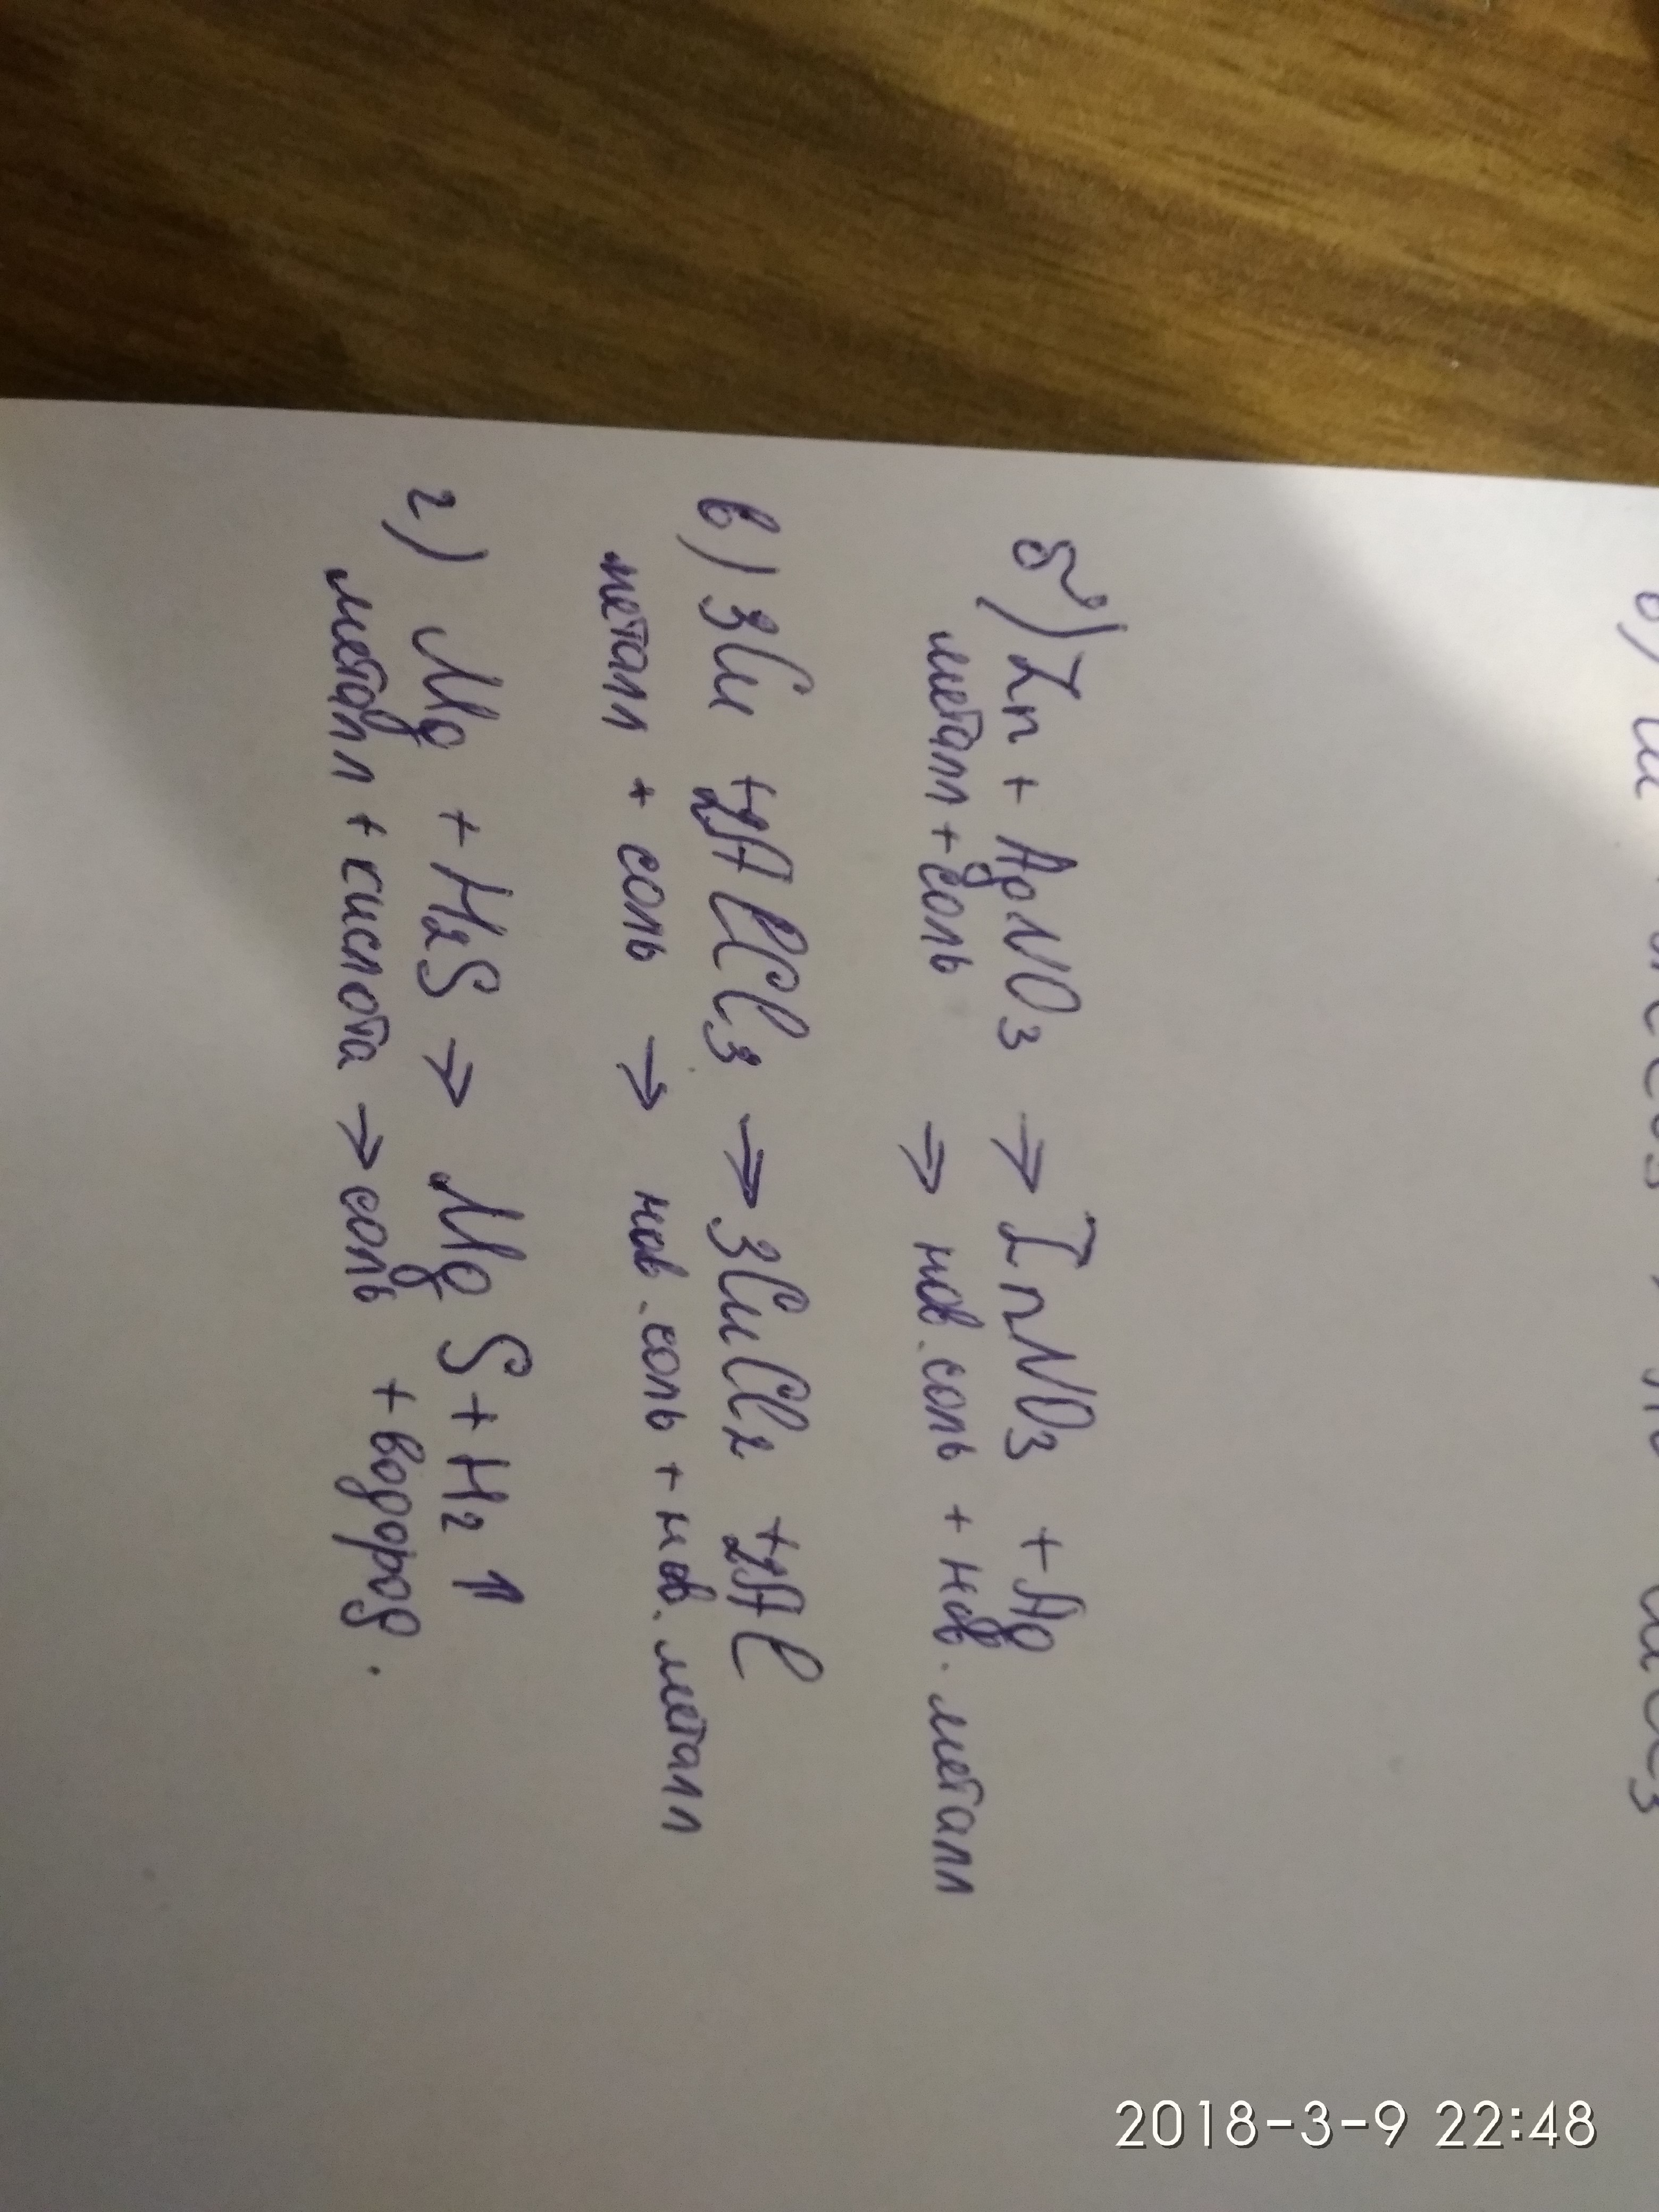 б) Zn + AgNO3 → ZnNO3 + Ag
метал + соль → нов. соль + нов. метал
в) 3Cu + 2AlCl3 → 3CuCl2 + 2Al
метал + соль → нов. соль + нов. метал
г) Mg + H2S → MgS + H2 ↑
метал + кислота → соль + водород.
2018-3-9 22:48